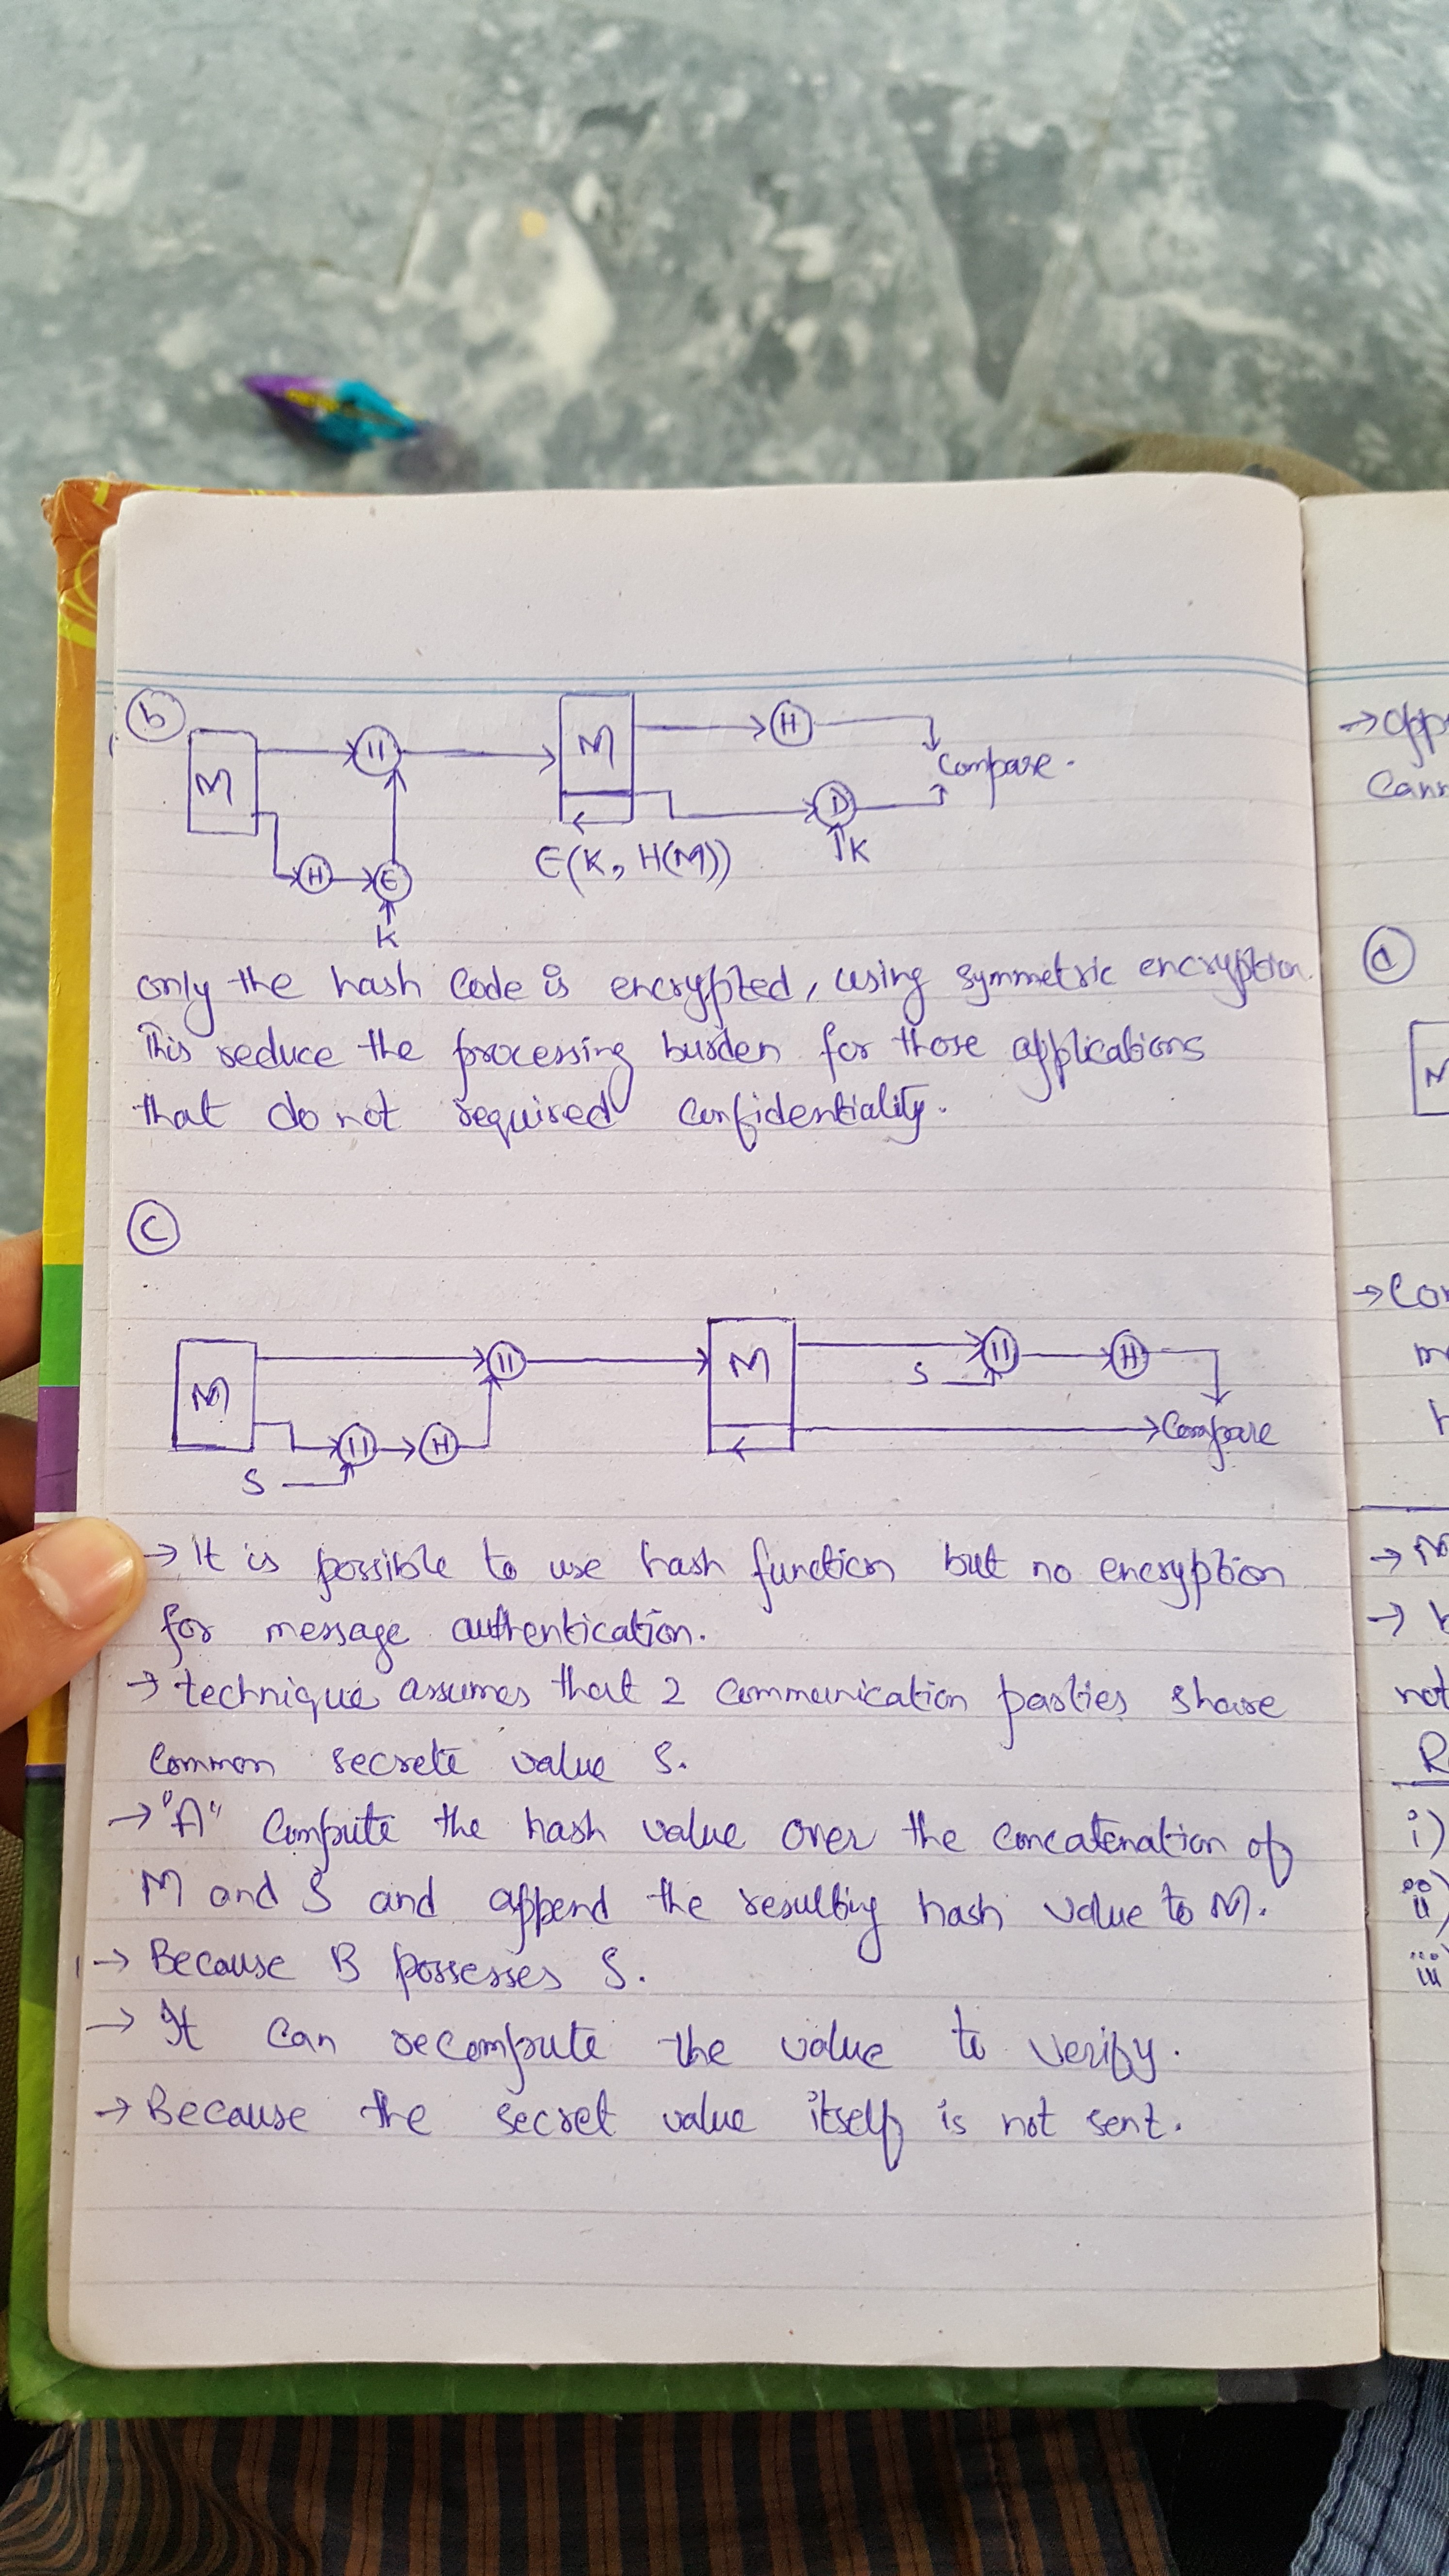 b
M || M H Compare.
D
E(K, H(M)) K
H E
K
only the hash Code is encrypted, using symmetric encryption.
This reduce the processing burden for those applications
that do not required Confidentiality.
C
M || M S || H
|| H Compare
S
→ It is possible to use hash function but no encryption
for message authentication.
→ technique assumes that 2 Communication parties share
Common secrete value S.
→ "A" Compute the hash value over the Concatenation of
M and S and append the resulting hash value to M.
→ Because B possesses S.
→ It Can recompute the value to verify.
→ Because the secret value itself is not sent.
→
d
→
→
→
not
i)
ii)
iii)